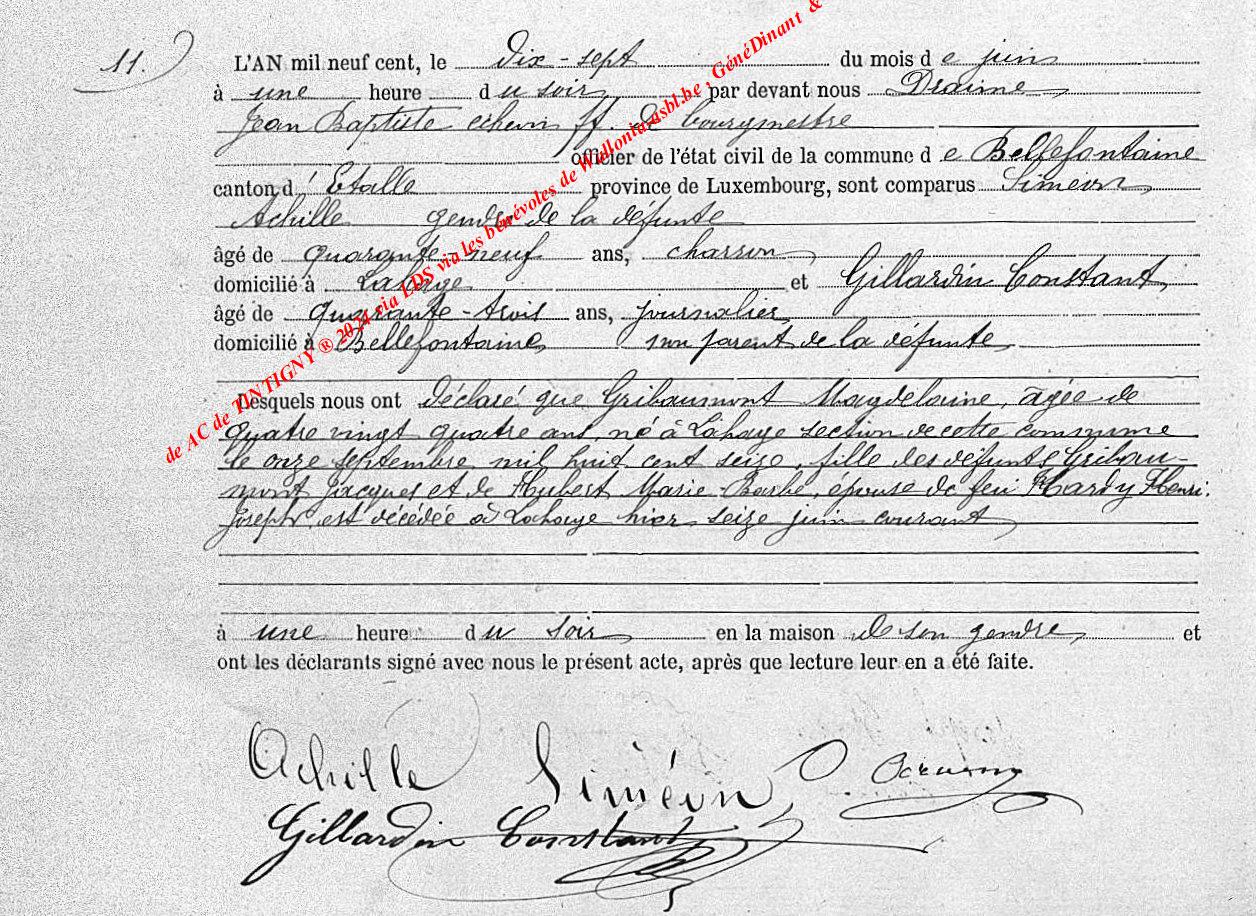 11.
L'AN mil neuf cent, le dix-sept du mois de juin
à une heure du soir par devant nous
Jean Baptiste échevin ff. de bourgmestre
officier de l'état civil de la commune de Bellefontaine
canton d'Etalle province de Luxembourg, sont comparus Siméon
Achille gendre de la défunte
âgé de quarante-neuf ans, charron
domicilié à Lahage et Gillardin Constant
âgé de quarante-trois ans, journalier
domicilié à Bellefontaine non parent de la défunte
Lesquels nous ont déclaré que Gribaumont Magdelaine, âgée de
quatre vingt quatre ans, né à Lahage section de cette commune
le onze septembre mil huit cent seize, fille des défunts Gribau-
mont Jacques et de Hubert Marie-Barbe, épouse de feu Hardy Henri
Joseph, est décédée à Lahage hier seize juin courant
à une heure du soir en la maison de son gendre, et
ont les déclarants signé avec nous le présent acte, après que lecture leur en a été faite.
Achille Siméon
Gillardin Constant
de AC de TINTIGNY ® 2024 via LDS via les bénévoles de Walloniaasbl.be , GénéDinant &